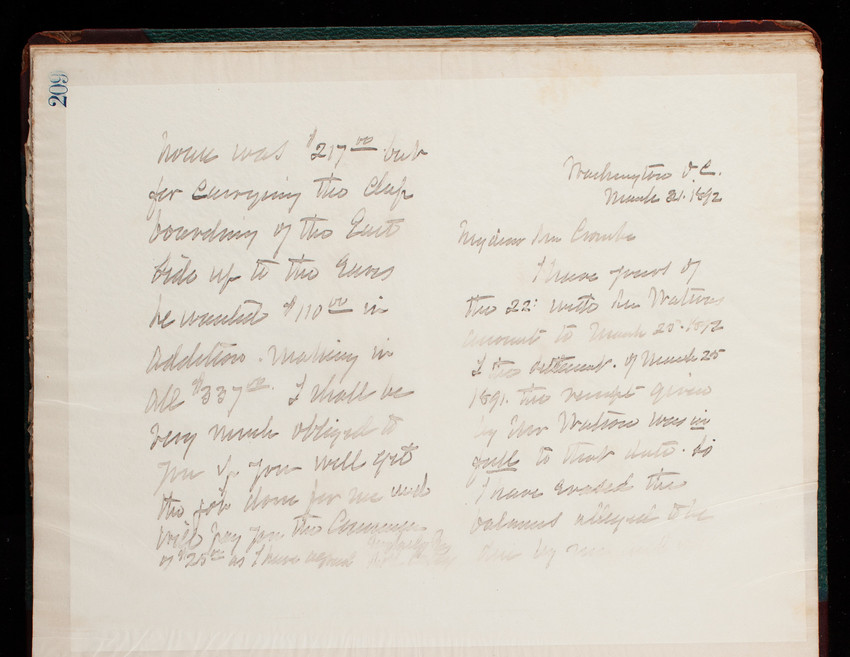 209
house was $217.00 but
for carrying the Clap
boarding of the East
Side up to the Eaves
he wanted $110.00 in
addition. Making in
all $337.00. I shall be
very much obliged to
you if you will get
the job done for me and
will pay you the
of $25.00 as I have agreed
Washington D.C.
March 31. 1892
My dear Mr Crombie
I have yours of
the 22d with Mr Watsons
account to March 25. 1892
I the settlement. of March 25
1891. the receipt given
by Mr Watson was in
full to that date. So
I have erased the
balance alleged to be
due by